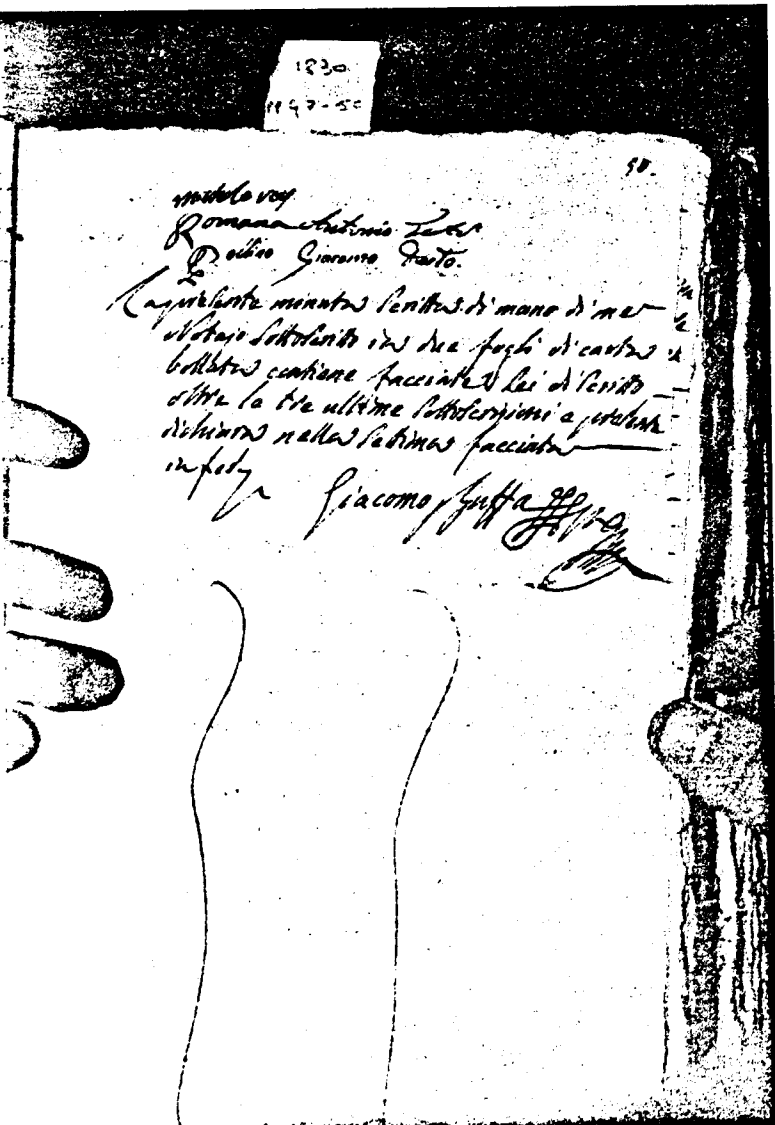 1830
1147-50
50.
Romana Antonio Teste
Giacomo Testo.
La presente minuta scritta di mano di me
Notajo sottoscritto in due fogli di carta
bollata contiene facciate sei di scritto
oltre le tre ultime sottoscrizioni e presente
dichiara nella settima facciata
in fede
Giacomo Buffa